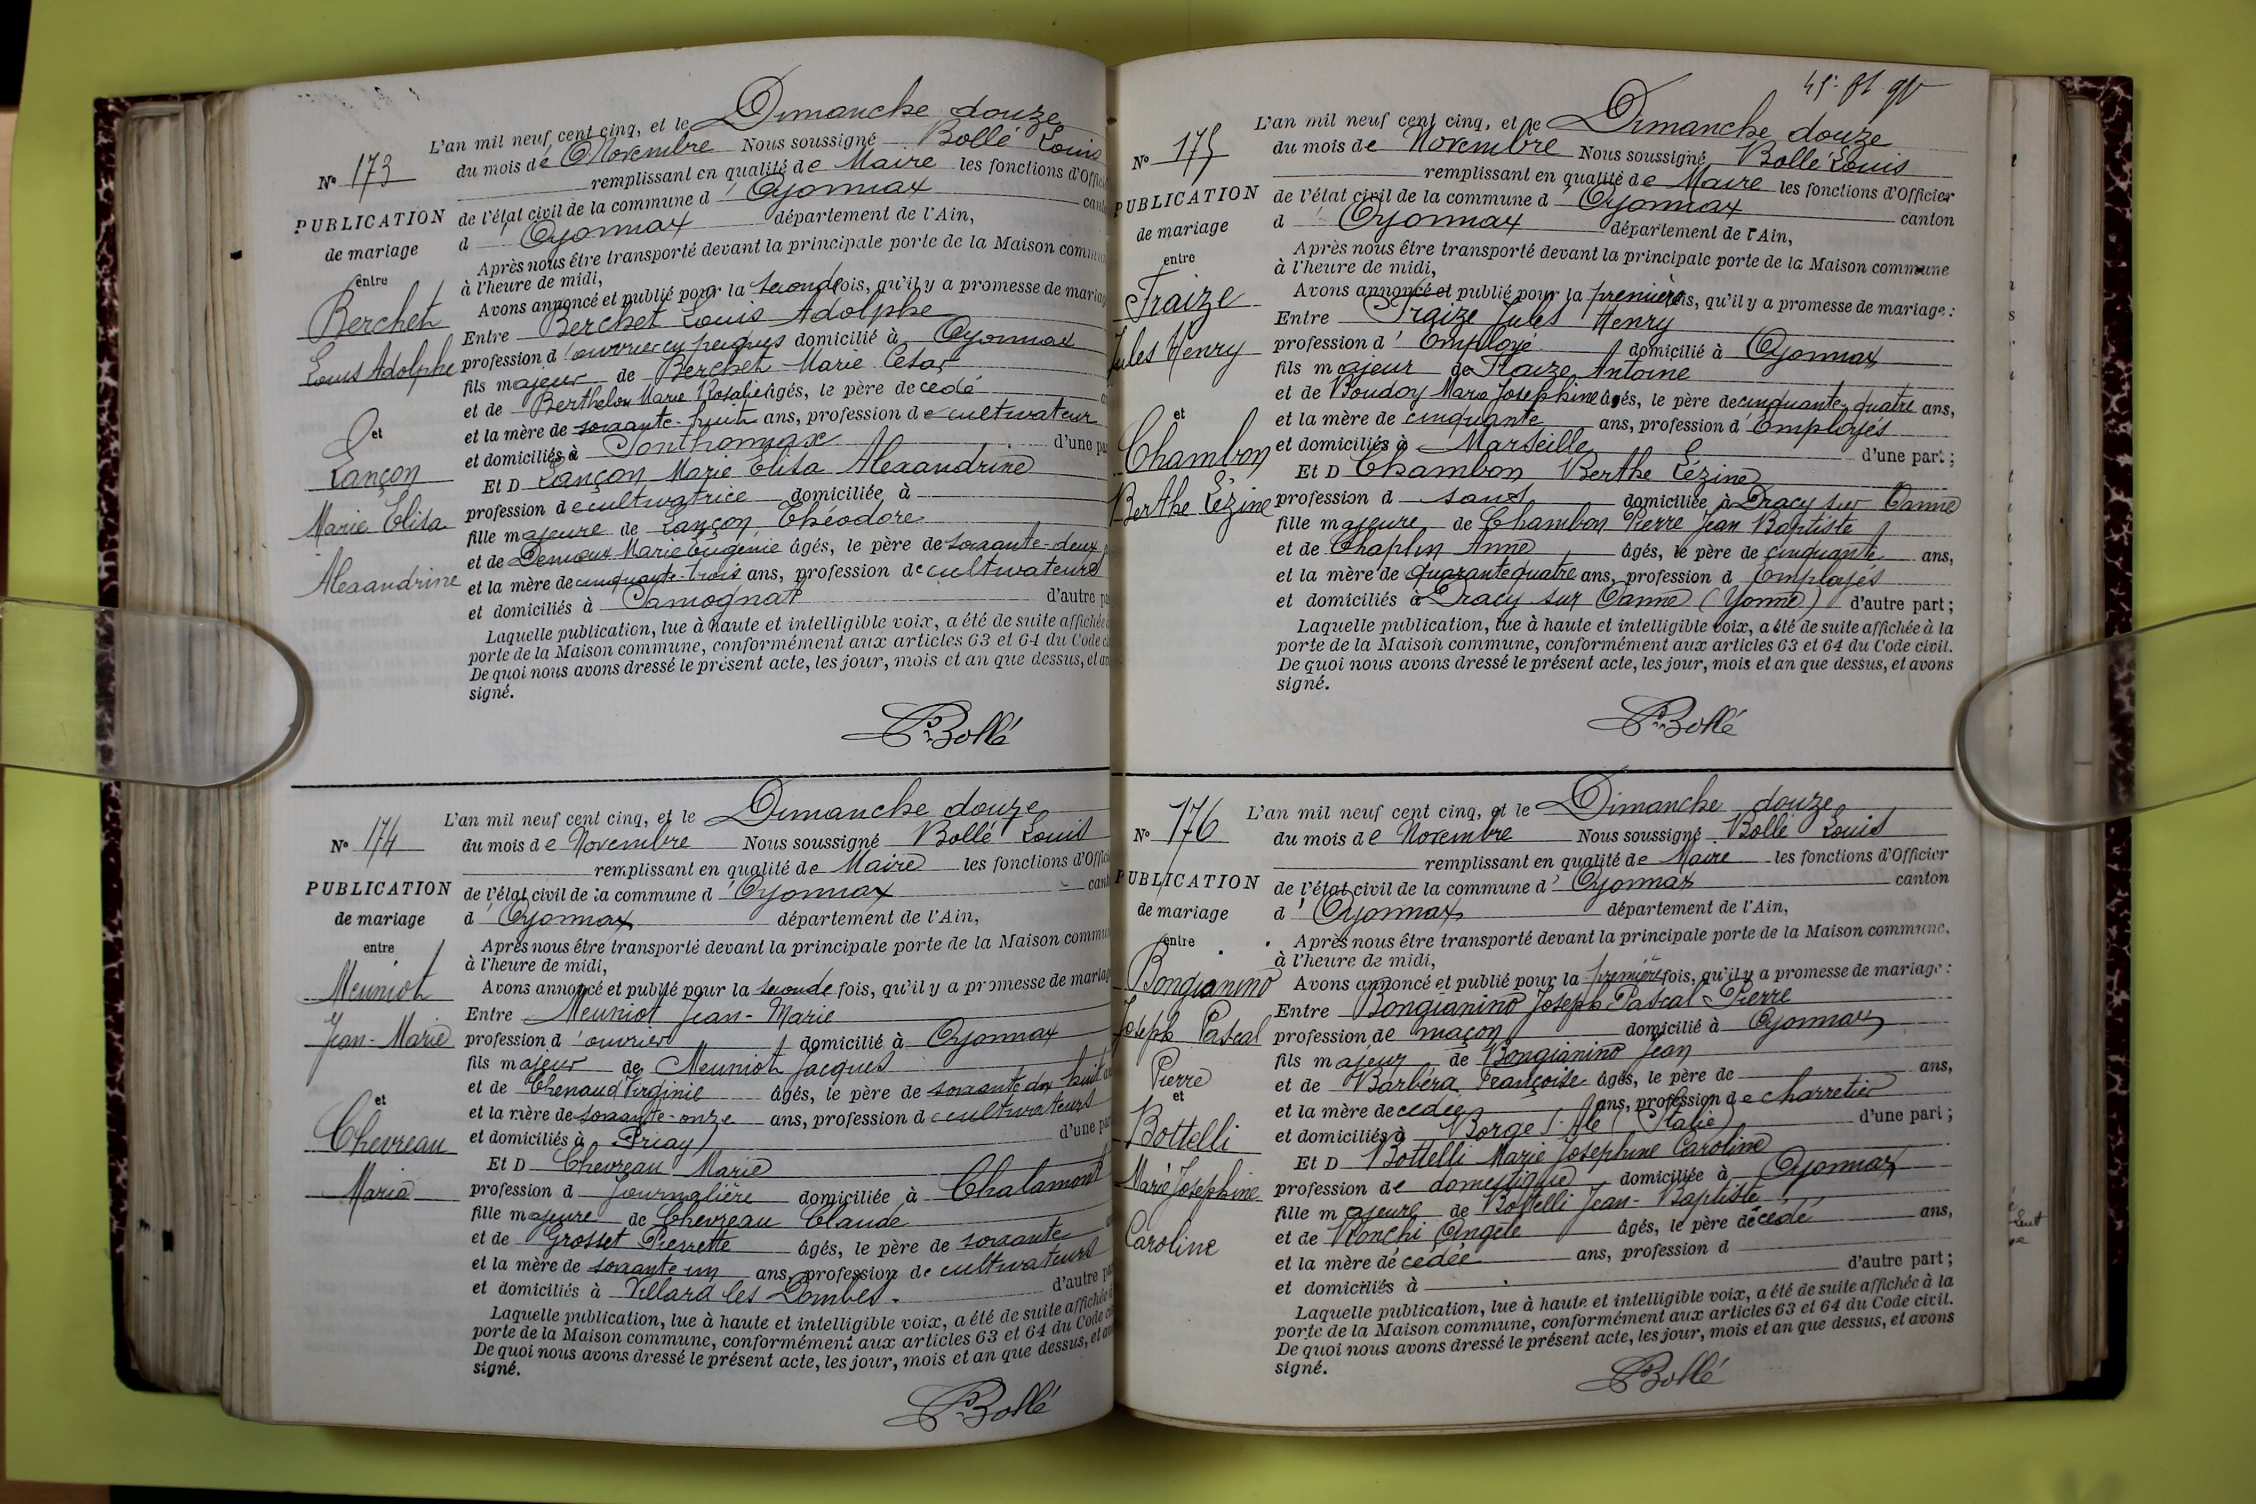 L'an mil neuf cent cinq, et le Dimanche douze
du mois de Novembre Nous soussigné Bollé Louis
remplissant en qualité de Maire les fonctions d'Offici
de l'état civil de la commune d'Oyonnax cant
d'Oyonnax département de l'Ain,
Après nous être transporté devant la principale porte de la Maison commun
à l'heure de midi,
Avons annoncé et publié pour la seconde fois, qu'il y a promesse de mariag
Entre Berchet Louis Adolphe
profession d'ouvrier en peignes domicilié à Oyonnax
fils majeur de Berchet Marie César
et de Berthelon Marie Rosalie âgés, le père décédé
et la mère de soixante-huit ans, profession de cultivateur
et domiciliés à Sonthonnax d'une pa
Et D Lançon Marie Elisa Alexandrine
profession de cultivatrice domiciliée à
fille majeure de Lançon Théodore
et de Marie Eugénie âgés, le père de soixante-deux
et la mère de cinquante-trois ans, profession de cultivateurs
et domiciliés à Samognat d'autre pa
Laquelle publication, lue à haute et intelligible voix, a été de suite affichée
porte de la Maison commune, conformément aux articles 63 et 64 du Code c
De quoi nous avons dressé le présent acte, les jour, mois et an que dessus, et av
signé.
Bollé
No 173
PUBLICATION
de mariage
entre
Berchet
Louis Adolphe
et
Lançon
Marie Elisa
Alexandrine
L'an mil neuf cent cinq, et le Dimanche douze
du mois de Novembre Nous soussigné Bollé Louis
remplissant en qualité de Maire les fonctions d'Offici
de l'état civil de la commune d'Oyonnax cant
d'Oyonnax département de l'Ain,
Après nous être transporté devant la principale porte de la Maison commun
à l'heure de midi,
Avons annoncé et publié pour la seconde fois, qu'il y a promesse de mariag
Entre Meuniot Jean-Marie
profession d'ouvrier domicilié à Oyonnax
fils majeur de Meuniot Jacques
et de Chenaud Virginie âgés, le père de soixante dix huit
et la mère de soixante-onze ans, profession de cultivateurs
et domiciliés à Priay d'une par
Et D Chevreau Marie
profession d Journalière domiciliée à Chalamont
fille majeure de Chevreau Claude
et de Grosset Pierrette âgés, le père de soixante
et la mère de soixante un ans, profession de cultivateurs
et domiciliés à Villard les Dombes. d'autre pa
Laquelle publication, lue à haute et intelligible voix, a été de suite affichée
porte de la Maison commune, conformément aux articles 63 et 64 du Code
De quoi nous avons dressé le présent acte, les jour, mois et an que dessus, et av
signé.
Bollé
No 174
PUBLICATION
de mariage
entre
Meuniot
Jean-Marie
et
Chevreau
Marie
L'an mil neuf cent cinq, et le Dimanche douze
du mois de Novembre Nous soussigné Bollé Louis
remplissant en qualité de Maire les fonctions d'Officier
de l'état civil de la commune d'Oyonnax canton
d'Oyonnax département de l'Ain,
Après nous être transporté devant la principale porte de la Maison commune
à l'heure de midi,
Avons annoncé et publié pour la première fois, qu'il y a promesse de mariage :
Entre Fraize Jules Henry
profession d'Employé domicilié à Oyonnax
fils majeur de Fraize Antoine
et de Boudoy Marie Josephine âgés, le père de cinquante-quatre ans,
et la mère de cinquante ans, profession d'Employés
et domiciliés à Marseille d'une part ;
Et D Chambon Berthe Lézine
profession d sans domiciliée à Dracy sur Oanne
fille majeure de Chambon Pierre Jean Baptiste
et de Chaplin Anne âgés, le père de cinquante ans,
et la mère de quarante quatre ans, profession d Employés
et domiciliés à Dracy sur Oanne (Yonne) d'autre part ;
Laquelle publication, lue à haute et intelligible voix, a été de suite affichée à la
porte de la Maison commune, conformément aux articles 63 et 64 du Code civil.
De quoi nous avons dressé le présent acte, les jour, mois et an que dessus, et avons
signé.
Bollé
No 175
PUBLICATION
de mariage
entre
Fraize
Jules Henry
et
Chambon
Berthe Lézine
L'an mil neuf cent cinq, et le Dimanche douze
du mois de Novembre Nous soussigné Bollé Louis
remplissant en qualité de Maire les fonctions d'Officier
de l'état civil de la commune d'Oyonnax canton
d'Oyonnax département de l'Ain,
Après nous être transporté devant la principale porte de la Maison commune,
à l'heure de midi,
Avons annoncé et publié pour la première fois, qu'il y a promesse de mariage :
Entre Bongianino Joseph Pascal Pierre
profession de maçon domicilié à Oyonnax
fils majeur de Bongianino Jean
et de Barbéra Françoise âgés, le père de ans,
et la mère décédée ans, profession de charretier
et domiciliés à Borge (Italie) d'une part ;
Et D Bottelli Marie Josephine Caroline
profession de domestique domiciliée à Oyonnax
fille majeure de Bottelli Jean-Baptiste
et de Vianchi Angèle âgés, le père décédé ans,
et la mère décédée ans, profession d
et domiciliés à d'autre part ;
Laquelle publication, lue à haute et intelligible voix, a été de suite affichée à la
porte de la Maison commune, conformément aux articles 63 et 64 du Code civil.
De quoi nous avons dressé le présent acte, les jour, mois et an que dessus, et avons
signé.
Bollé
No 176
PUBLICATION
de mariage
entre
Bongianino
Joseph Pascal
Pierre
et
Bottelli
Marie Josephine
Caroline